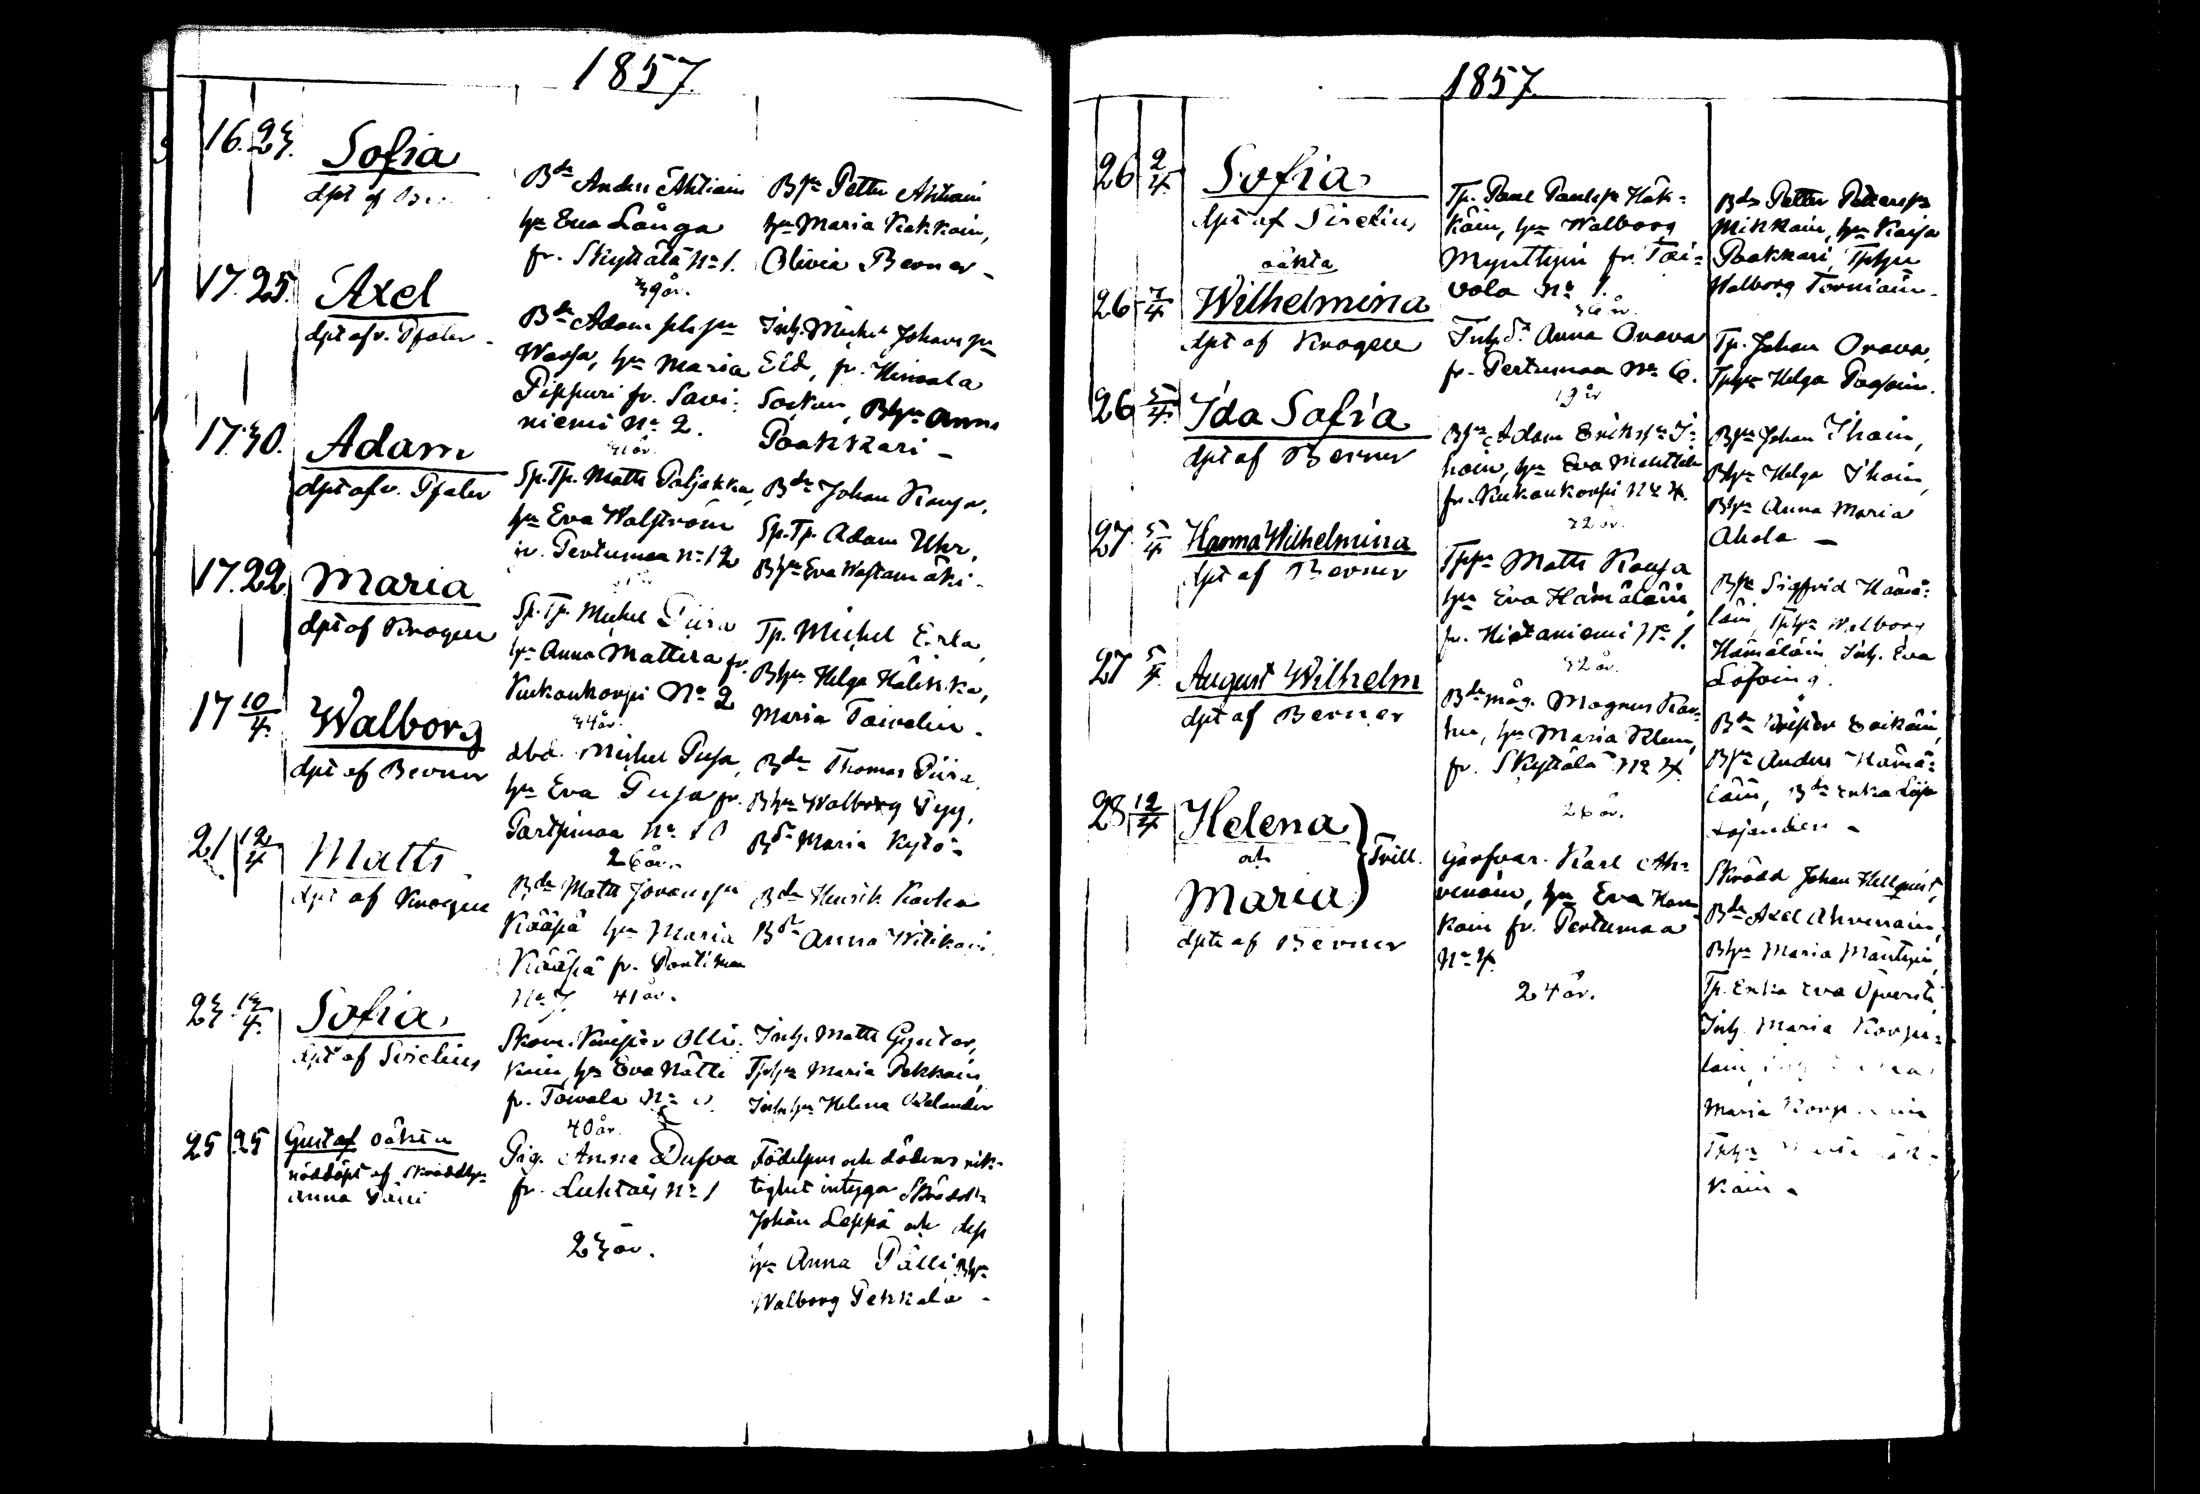 1857.
16. 23. Sofia
dpt af
Bde Anders Ahtiain
hu Eva Långa
fr. Skyttälä No 1.
39 år.
Bsn Petter Ahtiain
hu Maria Kokkoin,
Olivia Berner -
17. 25. Axel
dpt af v. Pfaler -
Bde Adam
hu Maria
Pippuri fr. Savi-
niemi No 2.
41 år.
Inh. Michel Johans sn
Eld, fr. Hirvola
Socken, Bhu Anna
Paakkari -
17. 30. Adam
dpt af v. Pfaler
Sp. Tp. Matts Paljakka,
hu Eva Walström
fr. Pertumaa No 12
Bde Johan Kauja,
Sp. Tp. Adam Uhr,
Bhu Eva Wastamäki -
17. 22. Maria
dpt af Krogell
Sp. Tp. Michel Piira
hu Anna Mattila fr.
Kukonkorpi No 2
34 år.
Tp. Michel Erla,
Bhu Helga Halikka,
Maria Toivelin -
17 10/4. Walborg
dpt af Berner
Michel Pusa,
hu Eva Pusa fr.
Partsimaa No 10
26 år.
Bde Thomas Piira,
Bhu Walborg Tyy,
Bdr Maria Kytö -
21 12/4 Matts
dpt af Krogell
Bde Matts Johanssn
Kääpä hu Maria
Kääpä fr. Pontimaa
No 7. 41 år.
Bde Henrik Karhu
Bdr Anna Witikain
23 13/4. Sofia
dpt af Sirelius
Skom. Krister Olli-
kain, hu Eva Nätti
fr. Toivola No
40 år.
Inh. Matts Gynter,
Tphu Maria Pekkain,
Inh hu Helena Welander
25 25 Gustaf oäkta
nöddöpt af Skräddhu
Anna Pälli
Pig. Anna Dufva
fr. Luhtais No 1
23 år.
Födelsens och dödens rik-
tighet intyga Skrädd.
Johan Leppä och dess
hu Anna Pälli, Bhu
Walborg Pekkala -
1857.
26 2/4. Sofia
dpt af Sirelius
Tp. Paul Paulss Häk-
käin, hu Walborg
Mynttyin fr. Toi-
vola No 1.
36 år.
Bde Petter Peterssn
Mikkain, hu Kaisa
Paakkari, Tphu
Walborg Torniain -
oäkta
26 7/4. Wilhelmina
dpt af Krogell
Inh. dr. Anna Orava
fr. Pertumaa No 6.
19 år
Tp. Johan Orava,
Tphu Helga Pagoin.
26 5/4. Ida Sofia
dpt af Berner
Bsn Adam Erikssn I-
hain, hu Eva
fr. Kukonkorpi No 4.
22 år.
Bsn Johan Ihain,
Bhu Helga Ihain,
Bhu Anna Maria
Ahola -
27. 5/4 Hanna Wilhelmina
dpt af Berner
Matts Kauja
hu Eva Hämäläin,
fr. Hietaniemi No 1.
32 år.
Bsn Sigfrid Hämä-
läin, Tphu Walborg
Hämäläin, Inh. Eva
Löfving.
27 5/4. August Wilhelm
dpt af Berner
Bde måg. Magnus Kar-
hu, hu Maria Klem,
fr. Skyttälä No 4.
26 år.
Bde Krister Erikäin,
Bsn Anders Hämä-
läin, Bdr Erika Lisa
Lojander -
28 12/4 Helena
och } Tvill.
Maria
dpte af Berner
Garfvar. Karl Ah-
venain, hu Eva
kain fr. Pertumaa
No 4.
24 år.
Skrädd Johan Hellquist,
Bde Axel Ahvenain,
Bhu Maria Mäntyin,
Tp. Enka Eva
Inh. Maria Korpe-
lain,
Maria
Tphu
kain -